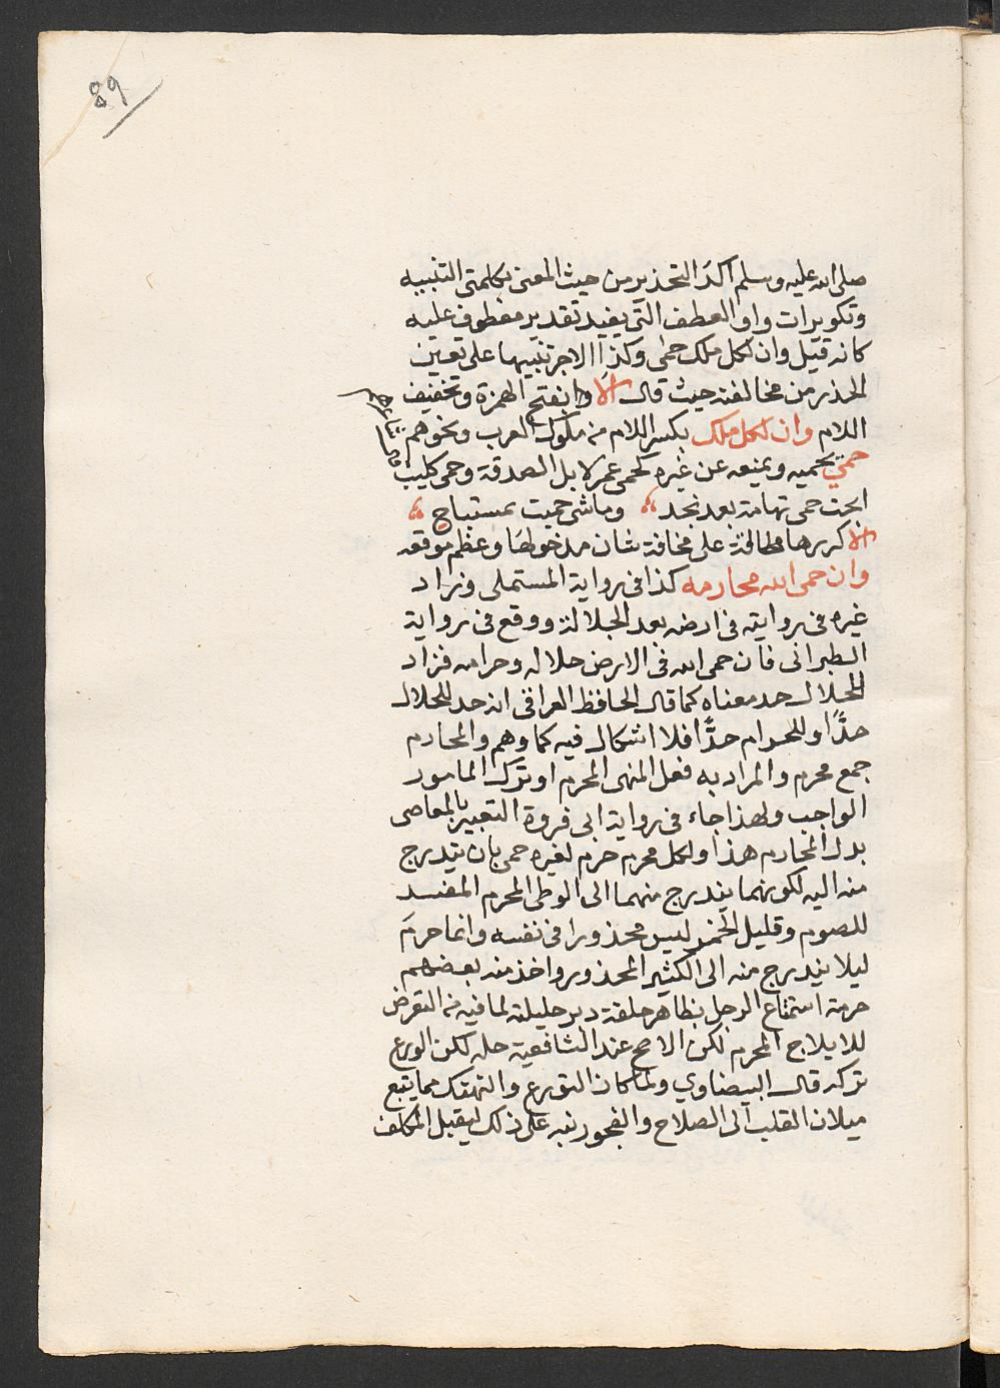 89
صلى الله عليه وسلم اكدَ التحذير من حيث المعنى بكلمتى التنبيه
وتكويرات واو العطف التى يفيد تقدير معطوف عليه
كانه قيل وان لكل ملك حمى وكذا الاجر تنبيها على تعين
الحذر من مخالفته حيث قال الا وا بفتح الهمزة وتخفيف
اللام وان لكل ملك بكسر اللام من ملوك العرب ونحوهم
حمى يحميه ويمنعه عن غيره كحمى عمر لابل الصدقة وحمى كليب
ابحت حمى تهامة بعد نجد وما شى حميت بمستباح
الا كررها مطالقة على مخافة شان مدخولها وعظم موقعه
وان حمى الله محارمه كذا فى رواية المستملى وزاد
غيره فى روايته فى ارضه بعد الجلالة ووقع فى رواية
الطبرانى فان حمى الله فى الارض حلاله وحرامه فزاد
الحلال حد معناه كما قال الحافظ العراقى انه حد للحلال
حدًّا وللحرام حدًّا فلا اشكال فيه كما وهم والمحارم
جمع محرم والمراد به فعل المنهى المحرم او ترك المامور
الواجب ولهذا جاء فى رواية ابى فروة التعبير بالمعاصى
بدل المحارم هذا ولكل محرم حرم لغيره حمى بان يتدرج
منه اليه لكونهما يندرج منهما الى الوطى المحرم المفسد
للصوم وقليل الخمر ليس محذورا فى نفسه وانما حرمَ
ليلا يندرج منه الى الكثير المحذور واخذ منه بعضهم
حرمة استمتاع الرجل بظاهر حلقة دبر حليلته لما فيه من التعرض
للايلاج المحرم لكن الاصح عند الشافعية حله لكن الورع
تركه قال البيضاوي ولما كان التورع والتهتك مما يتبع
ميلان القلب الى الصلاح والفجور نبه على ذلك ليقبل المكلف